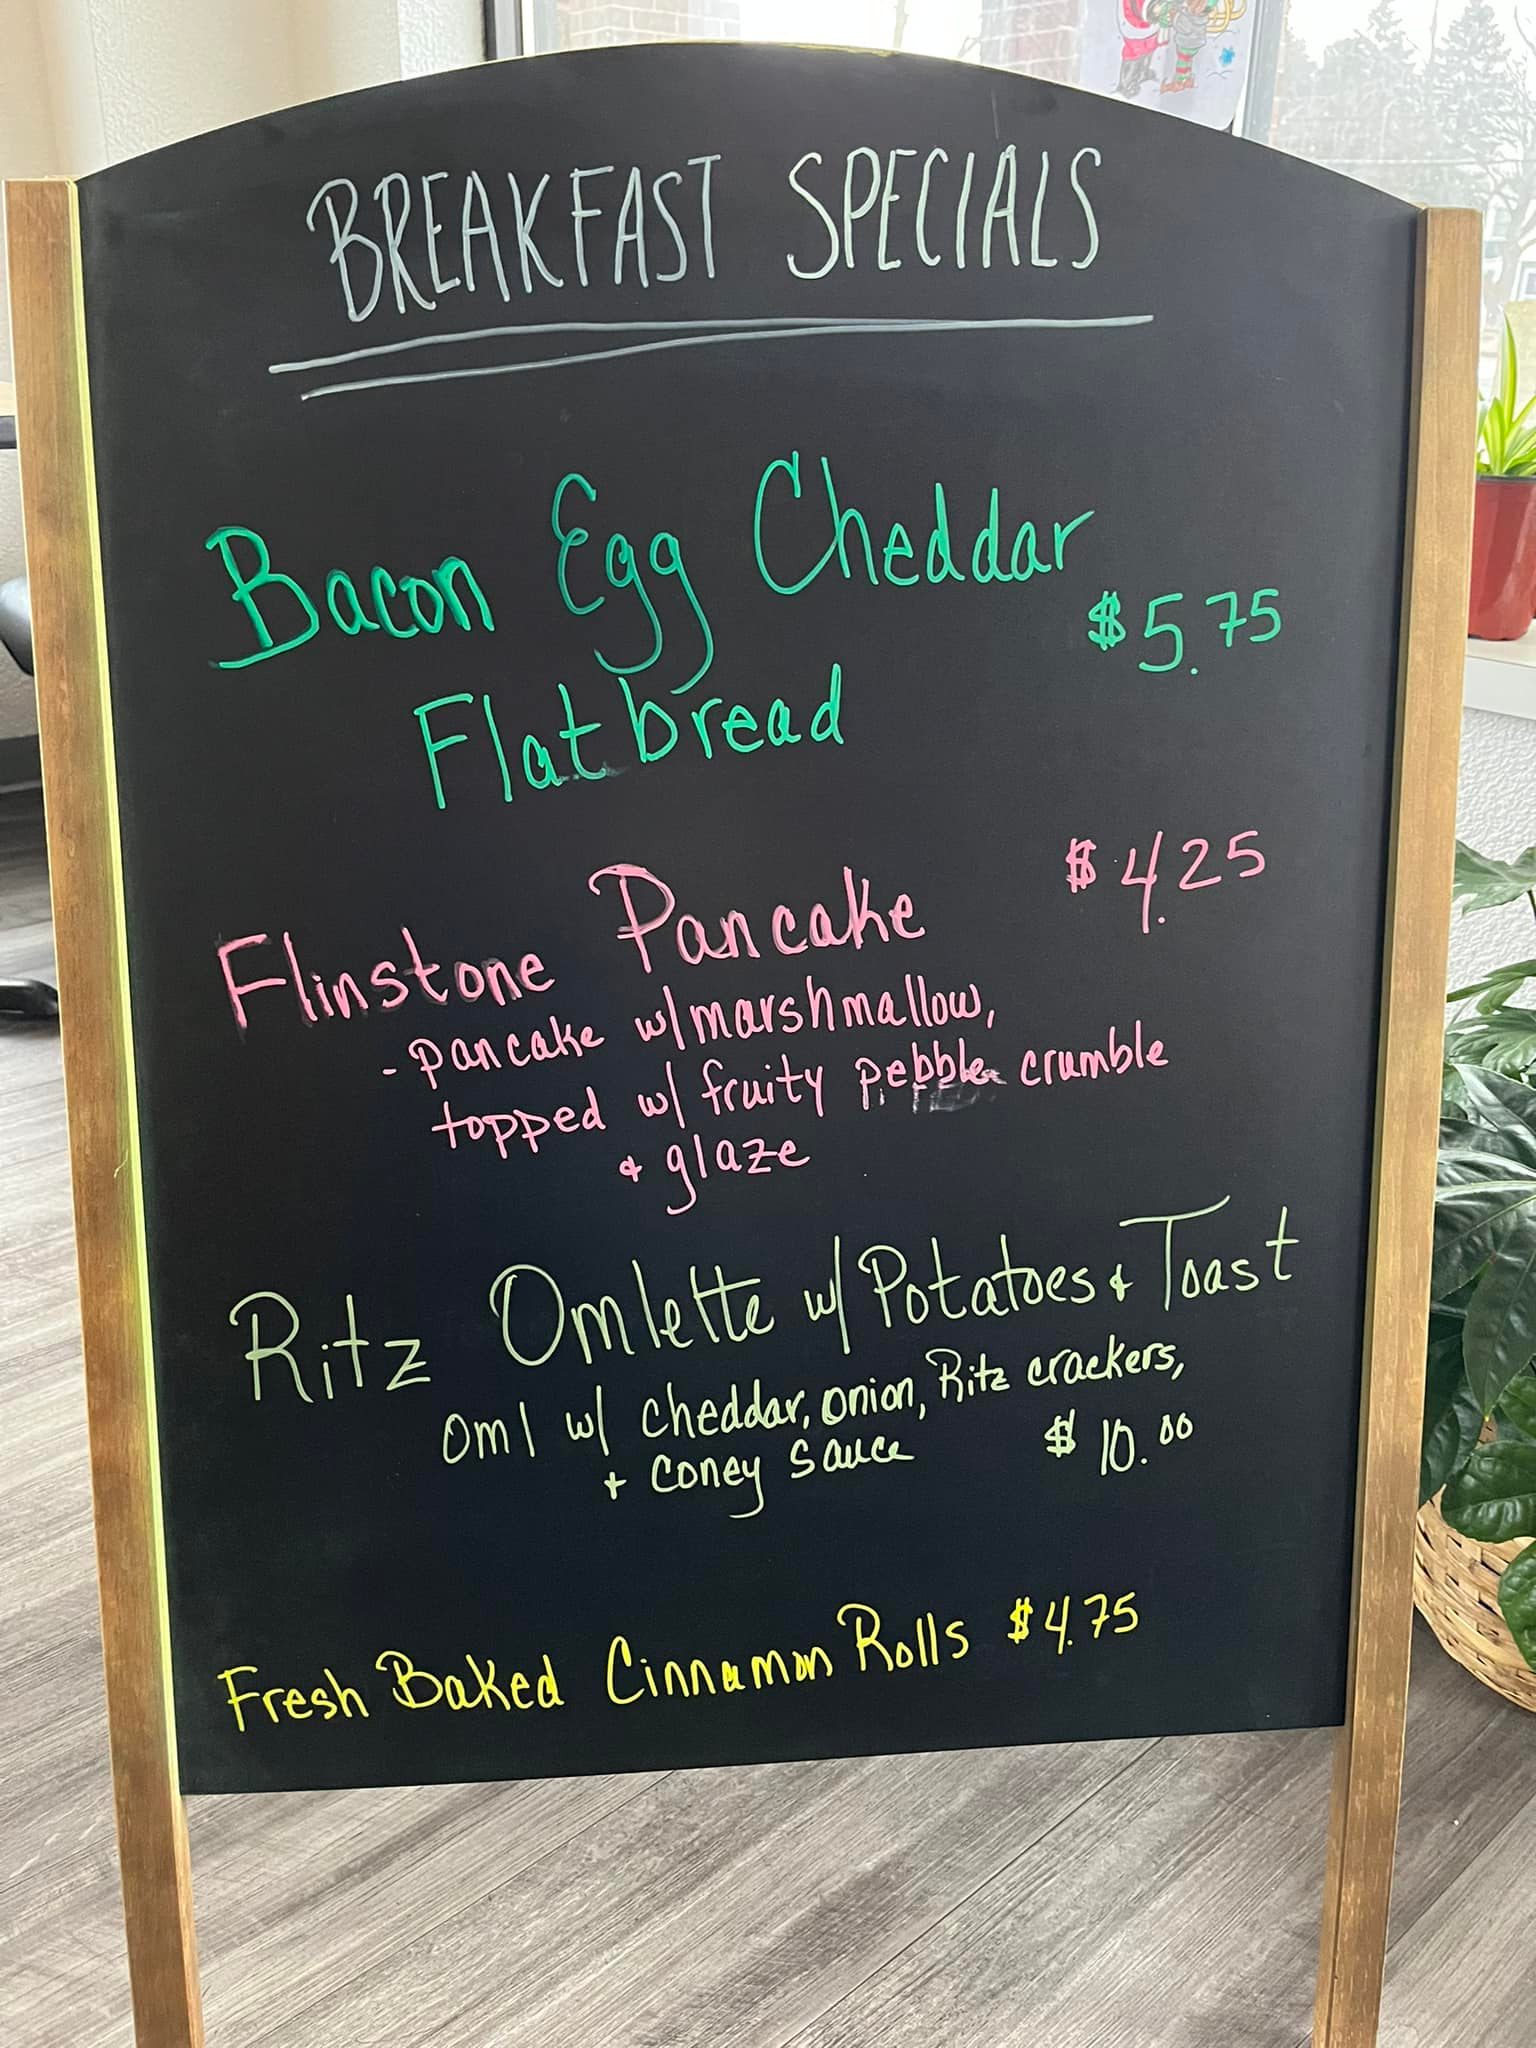 BREAKFAST SPECIALS
Bacon Egg Cheddar
$5.75
Flatbread
Flinstone Pancake $4.25
- pancake w/marshmallow,
topped w/ fruity pebble crumble
+ glaze
Ritz Omlette w/ Potatoes + Toast
oml w/ cheddar, onion, Ritz crackers,
+ coney sauce $10.00
Fresh Baked Cinnamon Rolls $4.75